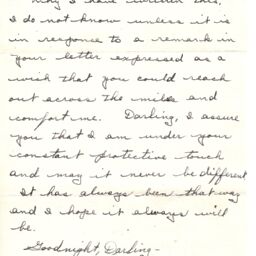 Why I have written this,
I do not know unless it is
in response to a remark in
your letter expressed as a
wish that you could reach
out across the miles and
comfort me. Darling, I assure
you that I am under your
constant protective touch
and may it never be different.
It has always been that way
and I hope it always will
be.
Goodnight, Darling-